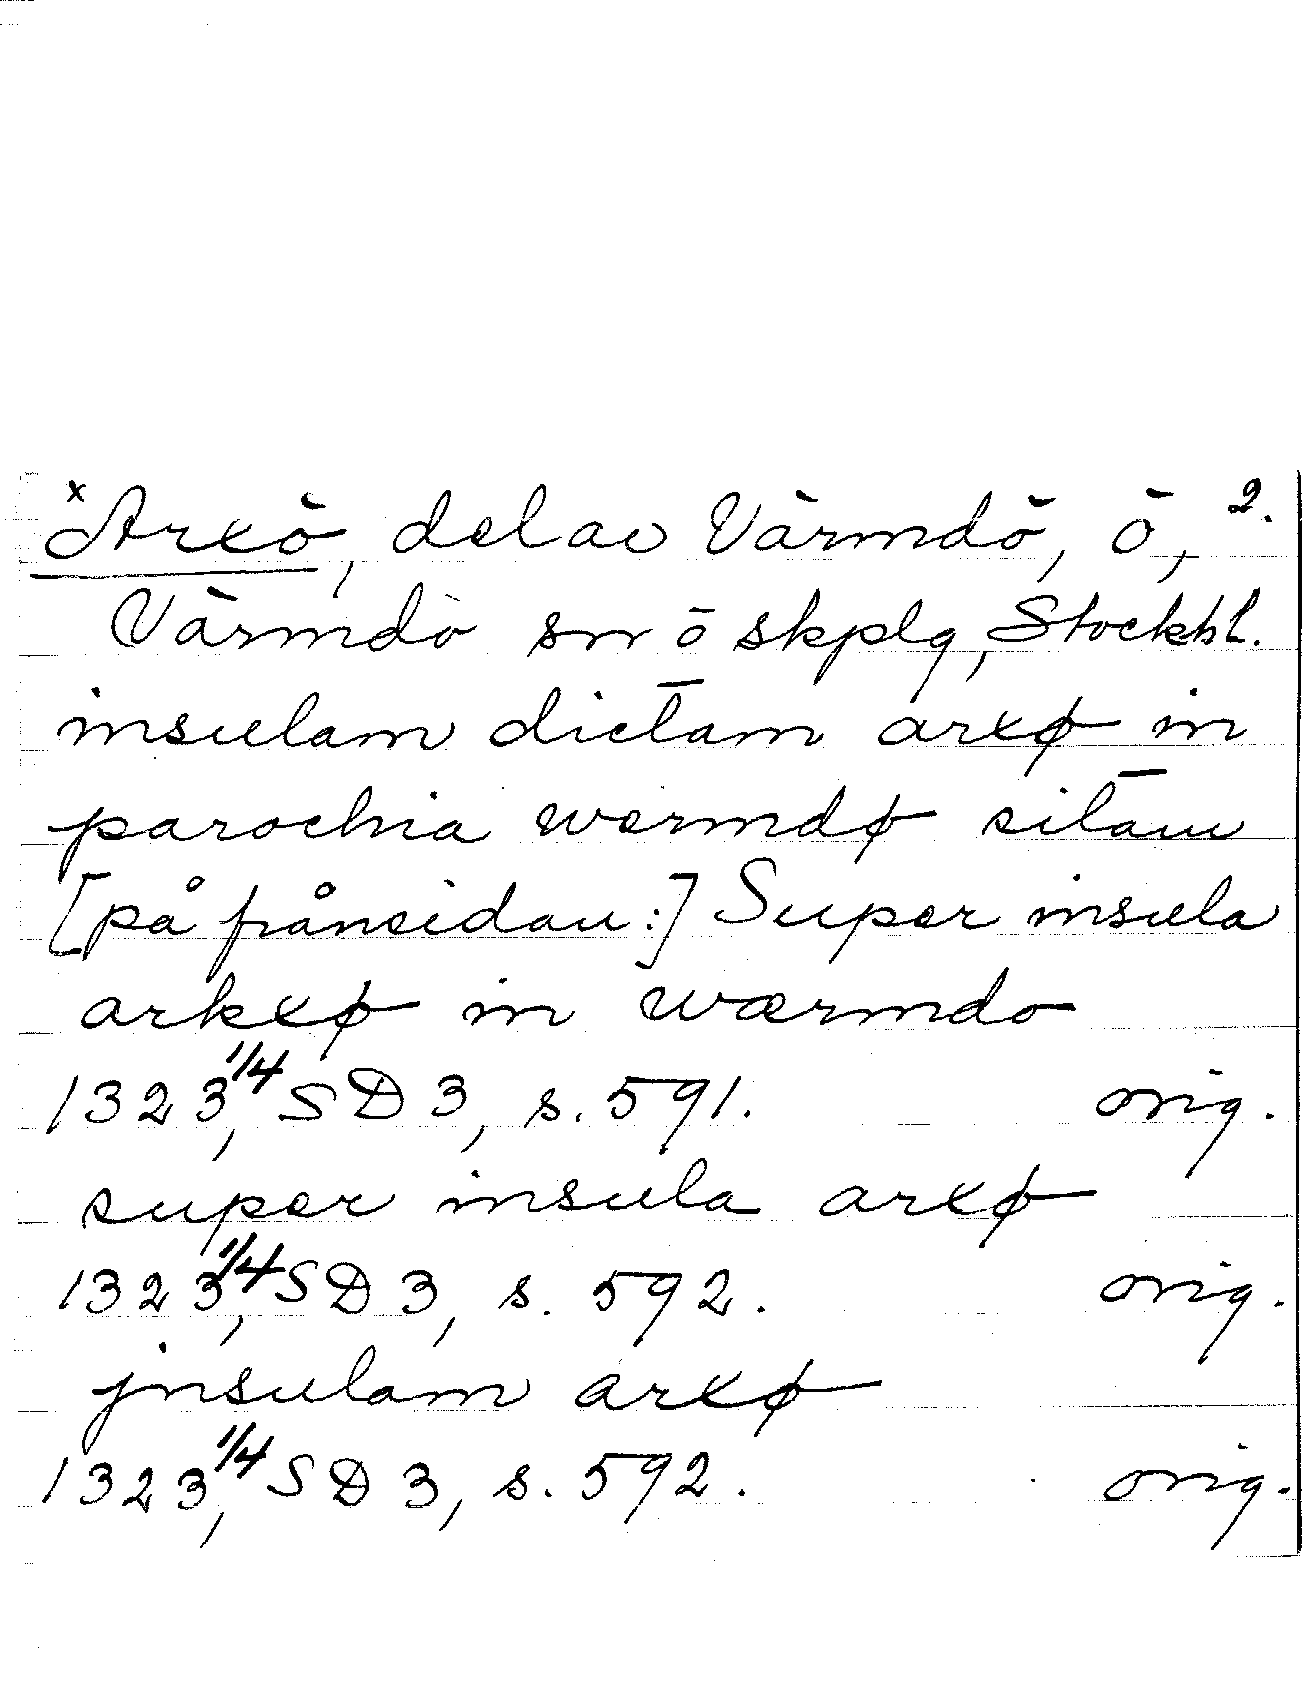 x Arxö, del av Värmdö, ö, 2.
Värmdö sn ö skplg, Stockhl.
insulam dictam arxø in
parochia wermdø sitam
[på frånsidan:] Super insula
arkxø in wærmdo
1323 1/4, SD 3, s. 591. orig.
super insula arxø
1323 1/4, SD 3, s. 592. orig.
jnsulam arxø
1323 1/4, SD 3, s. 592. orig.